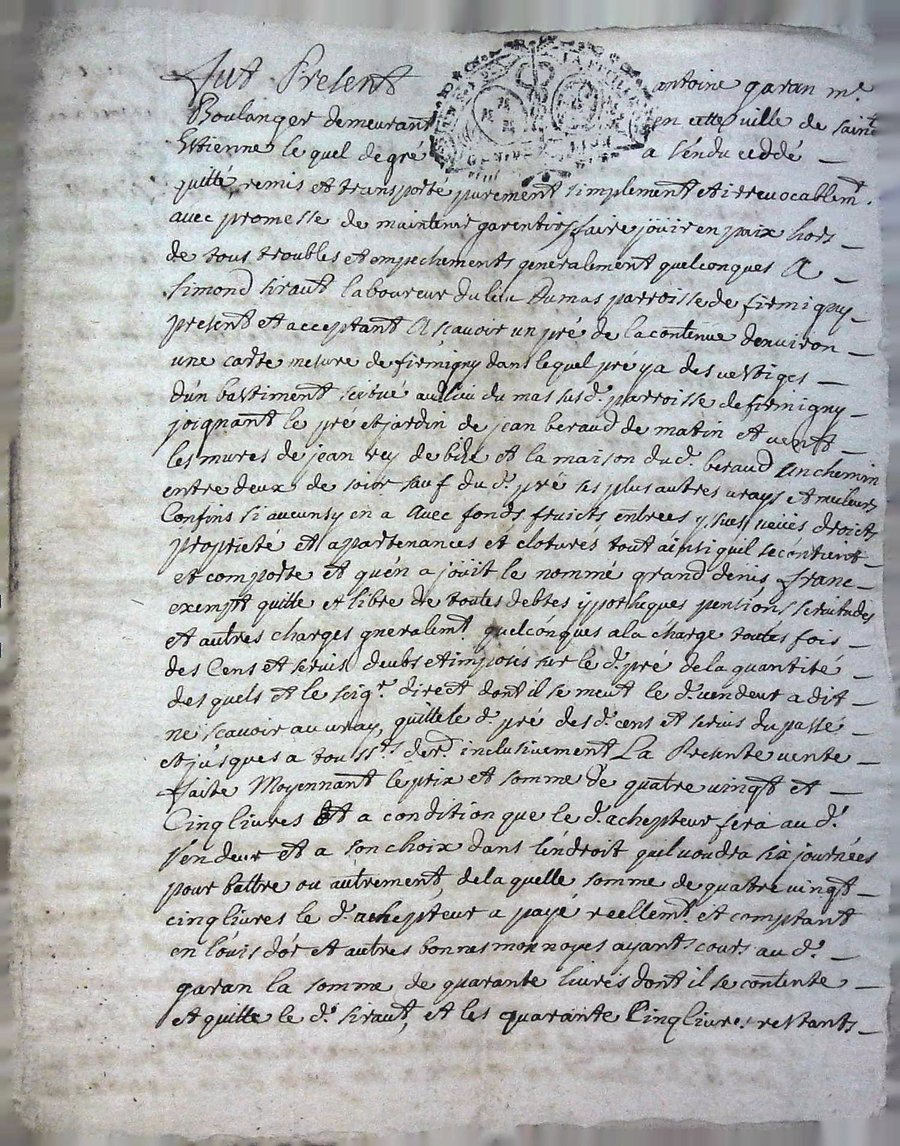 fut Present antoine garan m.e
Boulanger demeurant en cette ville de saint
Etienne lequel de gré a vendu ceddé
quitte, remis et transporté purement simplement et irrevocablem.t
avec promesse de maintenir garentir, faire joüir en paix hors
de tous troubles et empechements generalement quelconques A
simond siraut laboureur du lieu Dumas parroisse de firmigny
present et acceptant A scavoir un pré de la contenue denviron
une carte mesure de firmigny dans lequel pré ya des vestiges
d'un bastiment scitué au lieu du mas susd.t parroisse de firmigny
joignant le pré et jardin de jean beraud de matin et vent
les mures de jean rey de bize et la maison dud.t beraud un chemin
entre deux de soir sauf du d.t pré ses plus autres vrays et meilleurs
Confins si aucuns y en a avec fonds fruicts entrees yssues veües droicts
proprieté et apartenances et clotures tout ainsi quil se contient
et comporte et quén a joüit le nommé grand denis franc
exempt quitte et libre de toutes debtes ypotheques pentions servitudes
et autres charges gneralem.t quelcónques a la charge toutes fois
des Cens et servis deubs et imposés sur le d.t pré de la quantité
des quels et le seig.r direct dont il se meut le d.t vendeur a dit
ne scavoir au vray, quitte le d.t pré des d.t cens et servis du passé
et jusques a touss.ts der.r inclusivement La Presente vente
faite Moyennant le prix et somme de quatre vingt et
Cinq livres Et a condition que le d.t achepteur fera au d.t
vendeur et a son choix dans l'endroit quil voudra six journées
pour battre ou autrement, de la quelle somme de quatre vingt
cinq livres le d.t achepteur a payé reellem.t et comptant
en loüis dór et autres bonnes monnoyes ayant cours au d.t
garan la somme de quarante livres dont il se contente
et quitte le d.t siraut, et les quarante Cinq livres restants